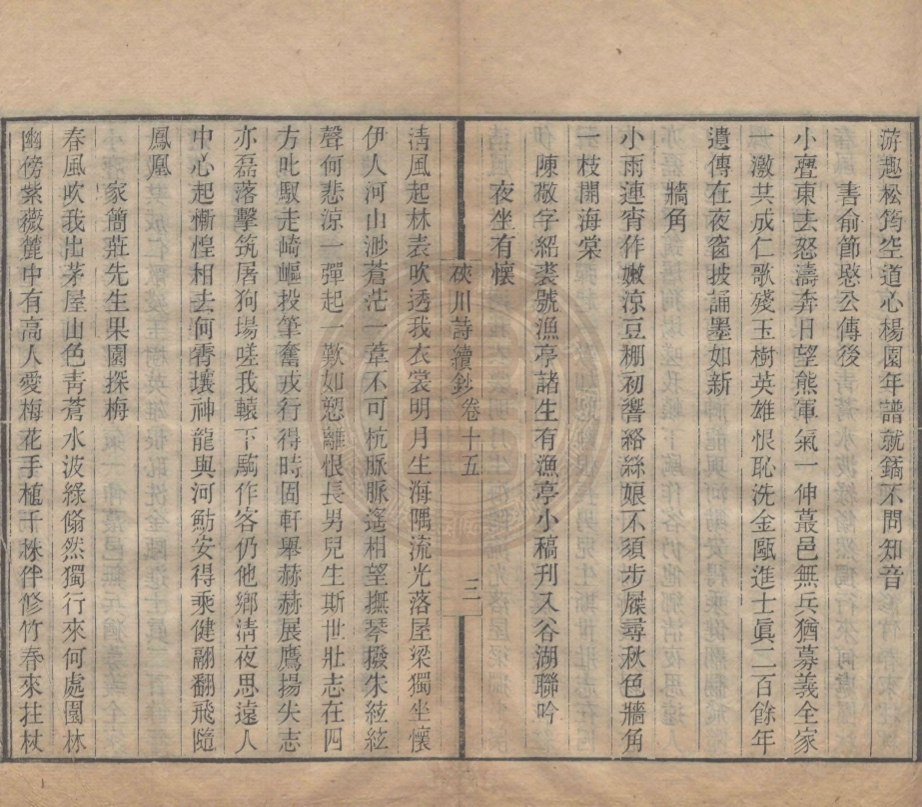 游趣松筠空道心楊園年譜就鐫不問知音
書俞節愍公傳後
小亹東去怒濤奔日望熊軍氣一伸蕞邑無兵猶募義全家
一激共成仁歌殘玉樹英雄恨恥洗金甌進士眞二百餘年
遺傳在夜窗披誦墨如新
牆角
小雨連宵作嫩涼豆棚初響絡絲娘不須步屧尋秋色牆角
一枝開海棠
陳敬字絅裘號漁亭諸生有漁亭小稿刊入谷湖聯吟
夜坐有懷
硤川詩續鈔卷十五 三
淸風起林表吹透我衣裳明月生海隅流光落屋梁獨坐懷
伊人河山渺蒼茫一葦不可杭脈脈遙相望撫琴撥朱絃絃
聲何悲涼一彈起一歎如愬離恨長男兒生斯世壯志在四
方叱馭走崎嶇投筆奮戎行得時固軒舉赫赫展鷹揚失志
亦磊落擊筑屠狗場嗟我轅下駒作客仍他鄉淸夜思遠人
中心起慚惶相去何霄壤神龍與河魴安得乘健翮翻飛隨
鳳凰
家簡莊先生果園探梅
春風吹我出茅屋山色靑蒼水波綠翛然獨行來何處園林
幽傍紫薇麓中有高人愛梅花手植千株伴修竹春來拄杖